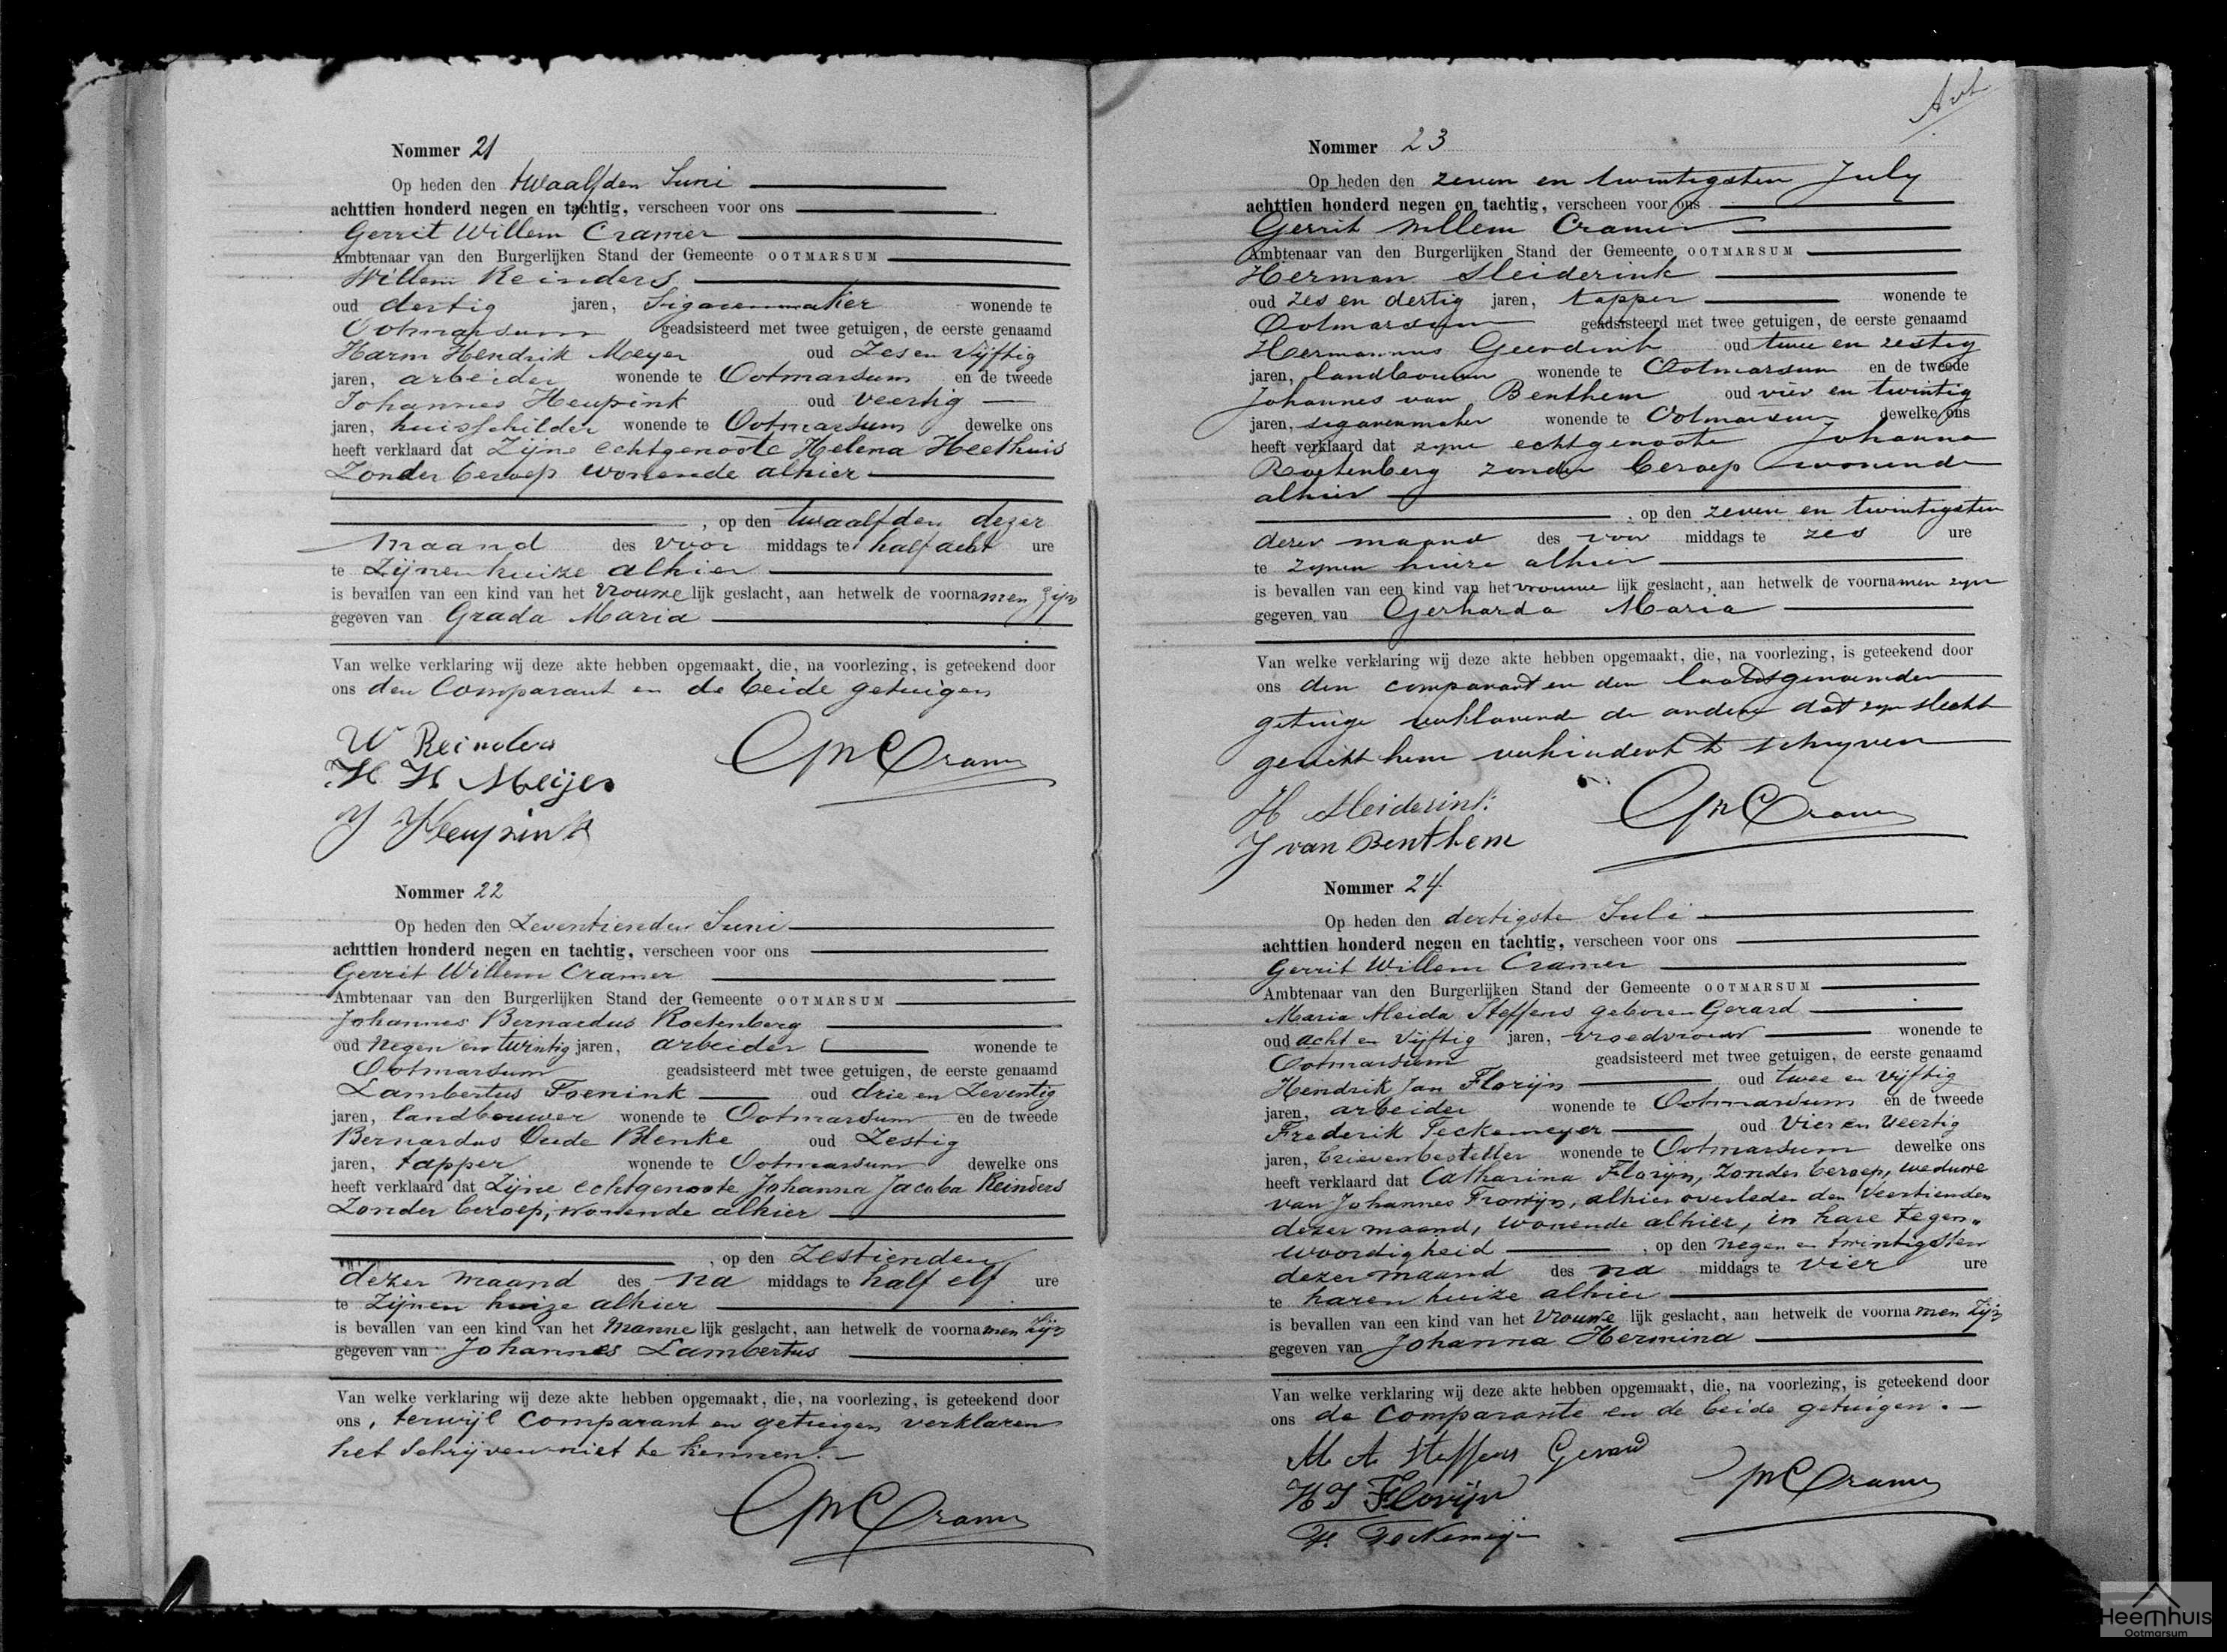 Nommer 21
Op heden den twaalfden Juni
achttien honderd negen en tachtig, verscheen voor ons
Gerrit Willem Cramer
Ambtenaar van den Burgerlijken Stand der Gemeente OOTMARSUM
Willem Reinders
oud dertig jaren, Sigarenmaker wonende te
Ootmarsum geadsisteerd met twee getuigen, de eerste genaamd
Harm Hendrik Meyer oud Zes en Vijftig
jaren, arbeider wonende te Ootmarsum en de tweede
Johannes Heupink oud veertig
jaren, huisschilder wonende te Ootmarsum dewelke ons
heeft verklaard dat Zijne echtgenoote Helena Heethuis
Zonder beroep wonende alhier
, op den twaalfden dezer
maand des voor middags te half acht ure
te Zijnen huize alhier
is bevallen van een kind van het Vrouwe lijk geslacht, aan hetwelk de voornamen zijn
gegeven van Grada Maria
Van welke verklaring wij deze akte hebben opgemaakt, die, na voorlezing, is geteekend door
ons den Comparant en de beide getuigen
W Reinders
H H Meijer
J Heupink
GWCramer
Nommer 22
Op heden den Zeventienden Juni
achttien honderd negen en tachtig, verscheen voor ons
Gerrit Willem Cramer
Ambtenaar van den Burgerlijken Stand der Gemeente OOTMARSUM
Johannes Bernardus Roetenberg
oud negen en twintig jaren, arbeider wonende te
Ootmarsum geadsisteerd met twee getuigen, de eerste genaamd
Lambertus Toenink oud drie en Zeventig
jaren, landbouwer wonende te Ootmarsum en de tweede
Bernardus Oude Blenke oud Zestig
jaren, tapper wonende te Ootmarsum dewelke ons
heeft verklaard dat Zijne echtgenoote Johanna Jacoba Reinders
Zonder beroep, wonende alhier
, op den Zestienden
dezer maand des na middags te half elf ure
te Zijnen huize alhier
is bevallen van een kind van het Manne lijk geslacht, aan hetwelk de voornamen Zijn
gegeven van Johannes Lambertus
Van welke verklaring wij deze akte hebben opgemaakt, die, na voorlezing, is geteekend door
ons, terwijl Comparant en getuigen verklaren
het Schrijven niet te kennen.
GWCramer
Nommer 23
Op heden den zeven en twintigsten July
achttien honderd negen en tachtig, verscheen voor ons
Gerrit Willem Cramer
Ambtenaar van den Burgerlijken Stand der Gemeente OOTMARSUM
Herman Sleiderink
oud zes en dertig jaren, tapper wonende te
Ootmarsum geadsisteerd met twee getuigen, de eerste genaamd
Hermannus Geerdink oud twee en zestig
jaren, landbouwer wonende te Ootmarsum en de tweede
Johannes van Benthem oud vier en twintig
jaren, sigarenmaker wonende te Ootmarsum dewelke ons
heeft verklaard dat zyne echtgenoote Johanna
Roetenberg zonder beroep wonende
alhier
, op den zeven en twintigsten
dezer maand des voor middags te zes ure
te zynen huize alhier
is bevallen van een kind van het vrouwe lijk geslacht, aan hetwelk de voornamen zyn
gegeven van Gerharda Maria
Van welke verklaring wij deze akte hebben opgemaakt, die, na voorlezing, is geteekend door
ons den comparant en den laatstgenoemden
getuige verklarende de andere dat zyn slecht
gezicht hem verhindert te schryven
H Sleiderink
J van Benthem
GWCramer
Nommer 24
Op heden den dertigste Juli
achttien honderd negen en tachtig, verscheen voor ons
Gerrit Willem Cramer
Ambtenaar van den Burgerlijken Stand der Gemeente OOTMARSUM
Maria Aleida Steffens geboren Gerard
oud acht en Vijftig jaren, vroedvrouw wonende te
Ootmarsum geadsisteerd met twee getuigen, de eerste genaamd
Hendrik Jan Florijn oud twee en Vijftig
jaren, arbeider wonende te Ootmarsum en de tweede
Frederik Teckemeyer oud Vier en Veertig
jaren, brievenbesteller wonende te Ootmarsum dewelke ons
heeft verklaard dat Catharina Florijn, Zonder beroep, weduwe
van Johannes Frowijn, alhier overleden den Veertienden
dezer maand, wonende alhier, in hare tegen„
woordigheid , op den negen en twintigsten
dezer maand des na middags te vier ure
te haren huize alhier
is bevallen van een kind van het Vrouwe lijk geslacht, aan hetwelk de voornamen Zijn
gegeven van Johanna Hermina
Van welke verklaring wij deze akte hebben opgemaakt, die, na voorlezing, is geteekend door
ons de Comparante en de beide getuigen.
M A Steffens Gerard
H J Florijn
F. Teckemeijer
GWCramer
Heemhuis
Ootmarsum